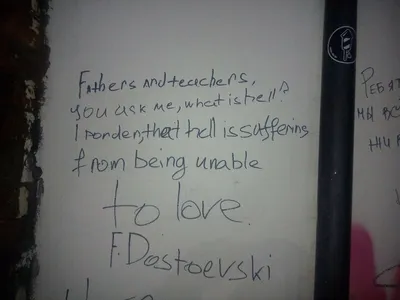 Fathers and teachers,
you ask me, what is hell?
I ponder, that hell is suffering
from being unable
to love.
F. Dostoevski
РЕБЯТ
МЫ ВС